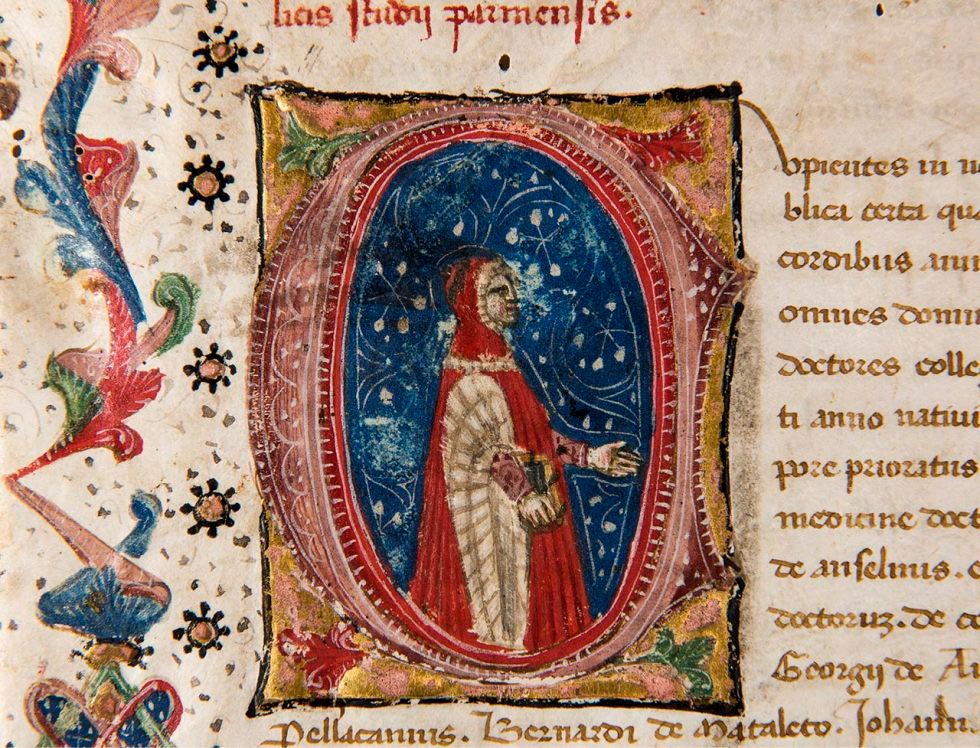 licis studij parmensis.
O
upientes in
blica certa qu
cordibus ani
omnes domi
doctores colle
ti anno nativi
prioratus
medicine doct
de anselmis.
doctoruz. de
Georgij de A
Pellacanus. Bernardi de Mataleto. Johann